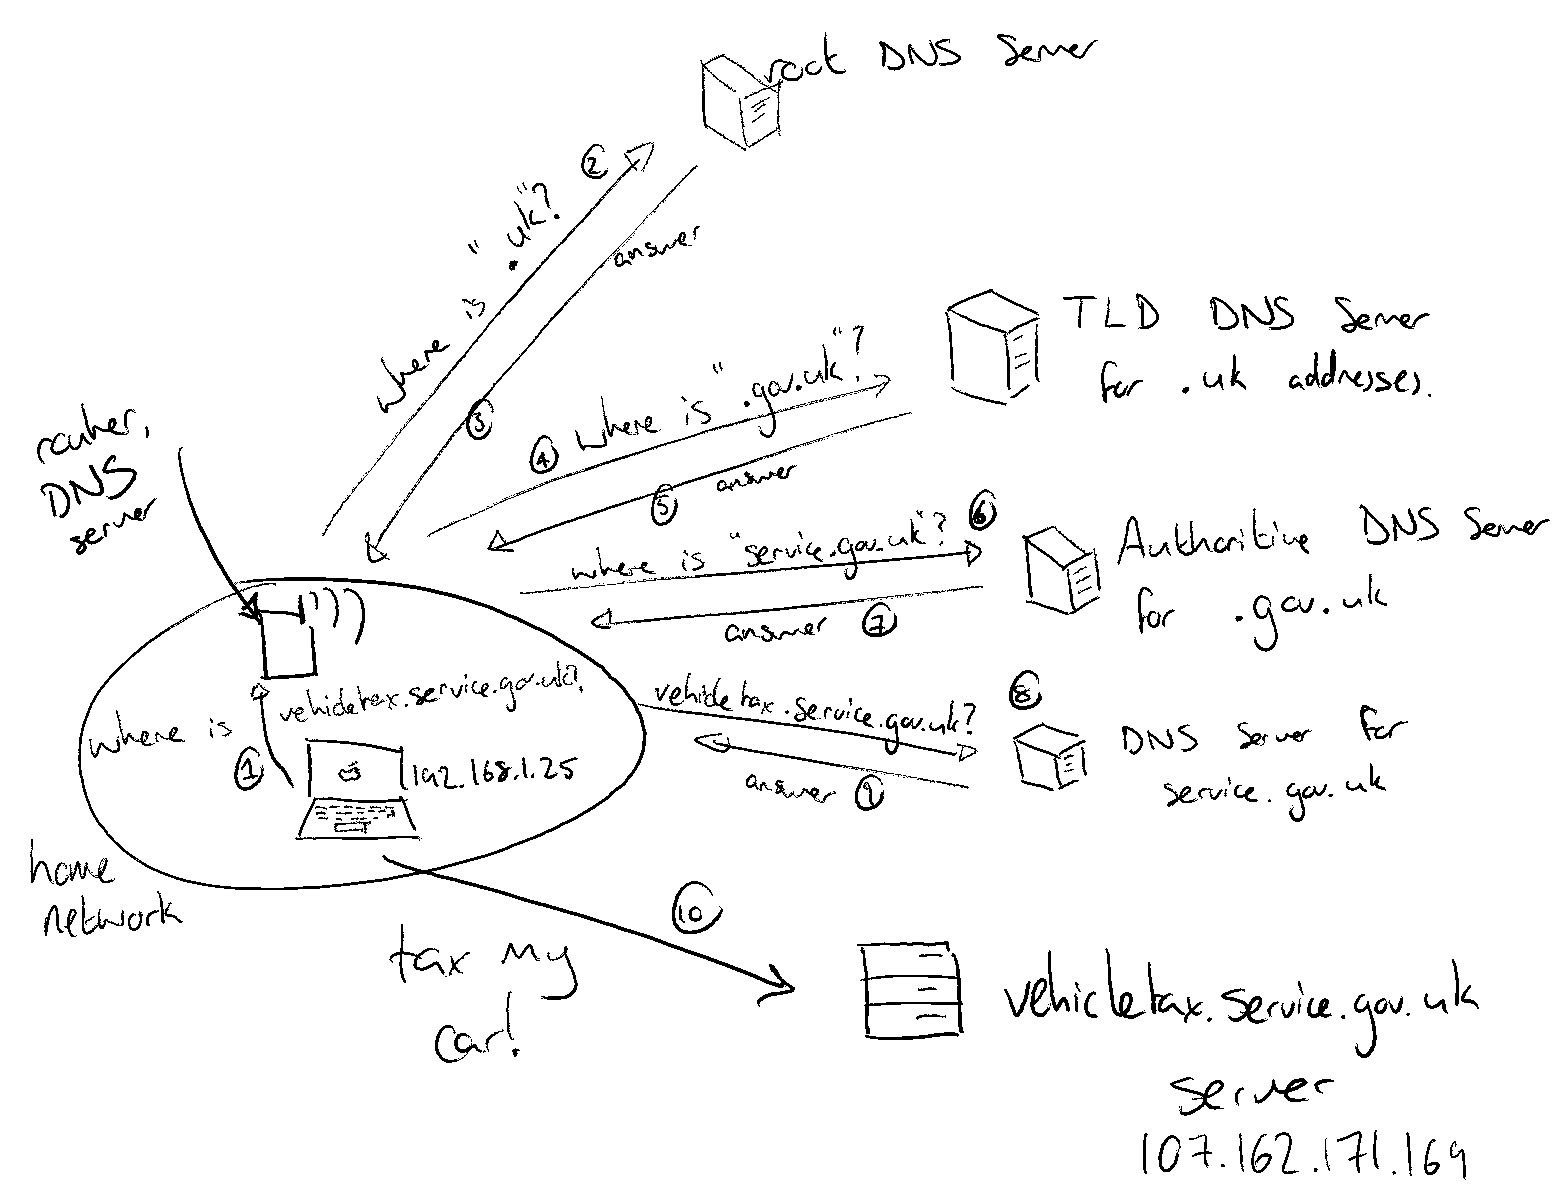 root DNS Server
② where is ".uk"?
answer
③
TLD DNS Server
for .uk addresses.
④ where is ".gov.uk"?
answer
⑤
router,
DNS
server
where is "service.gov.uk"? ⑥
Authoritive DNS Server
for .gov.uk
answer ⑦
where is vehicletax.service.gov.uk?
①
192.168.1.25
vehicletax.service.gov.uk? ⑧
DNS Server for
service.gov.uk
answer ⑨
home
network
⑩
tax my
car!
vehicletax.service.gov.uk
server
107.162.171.169